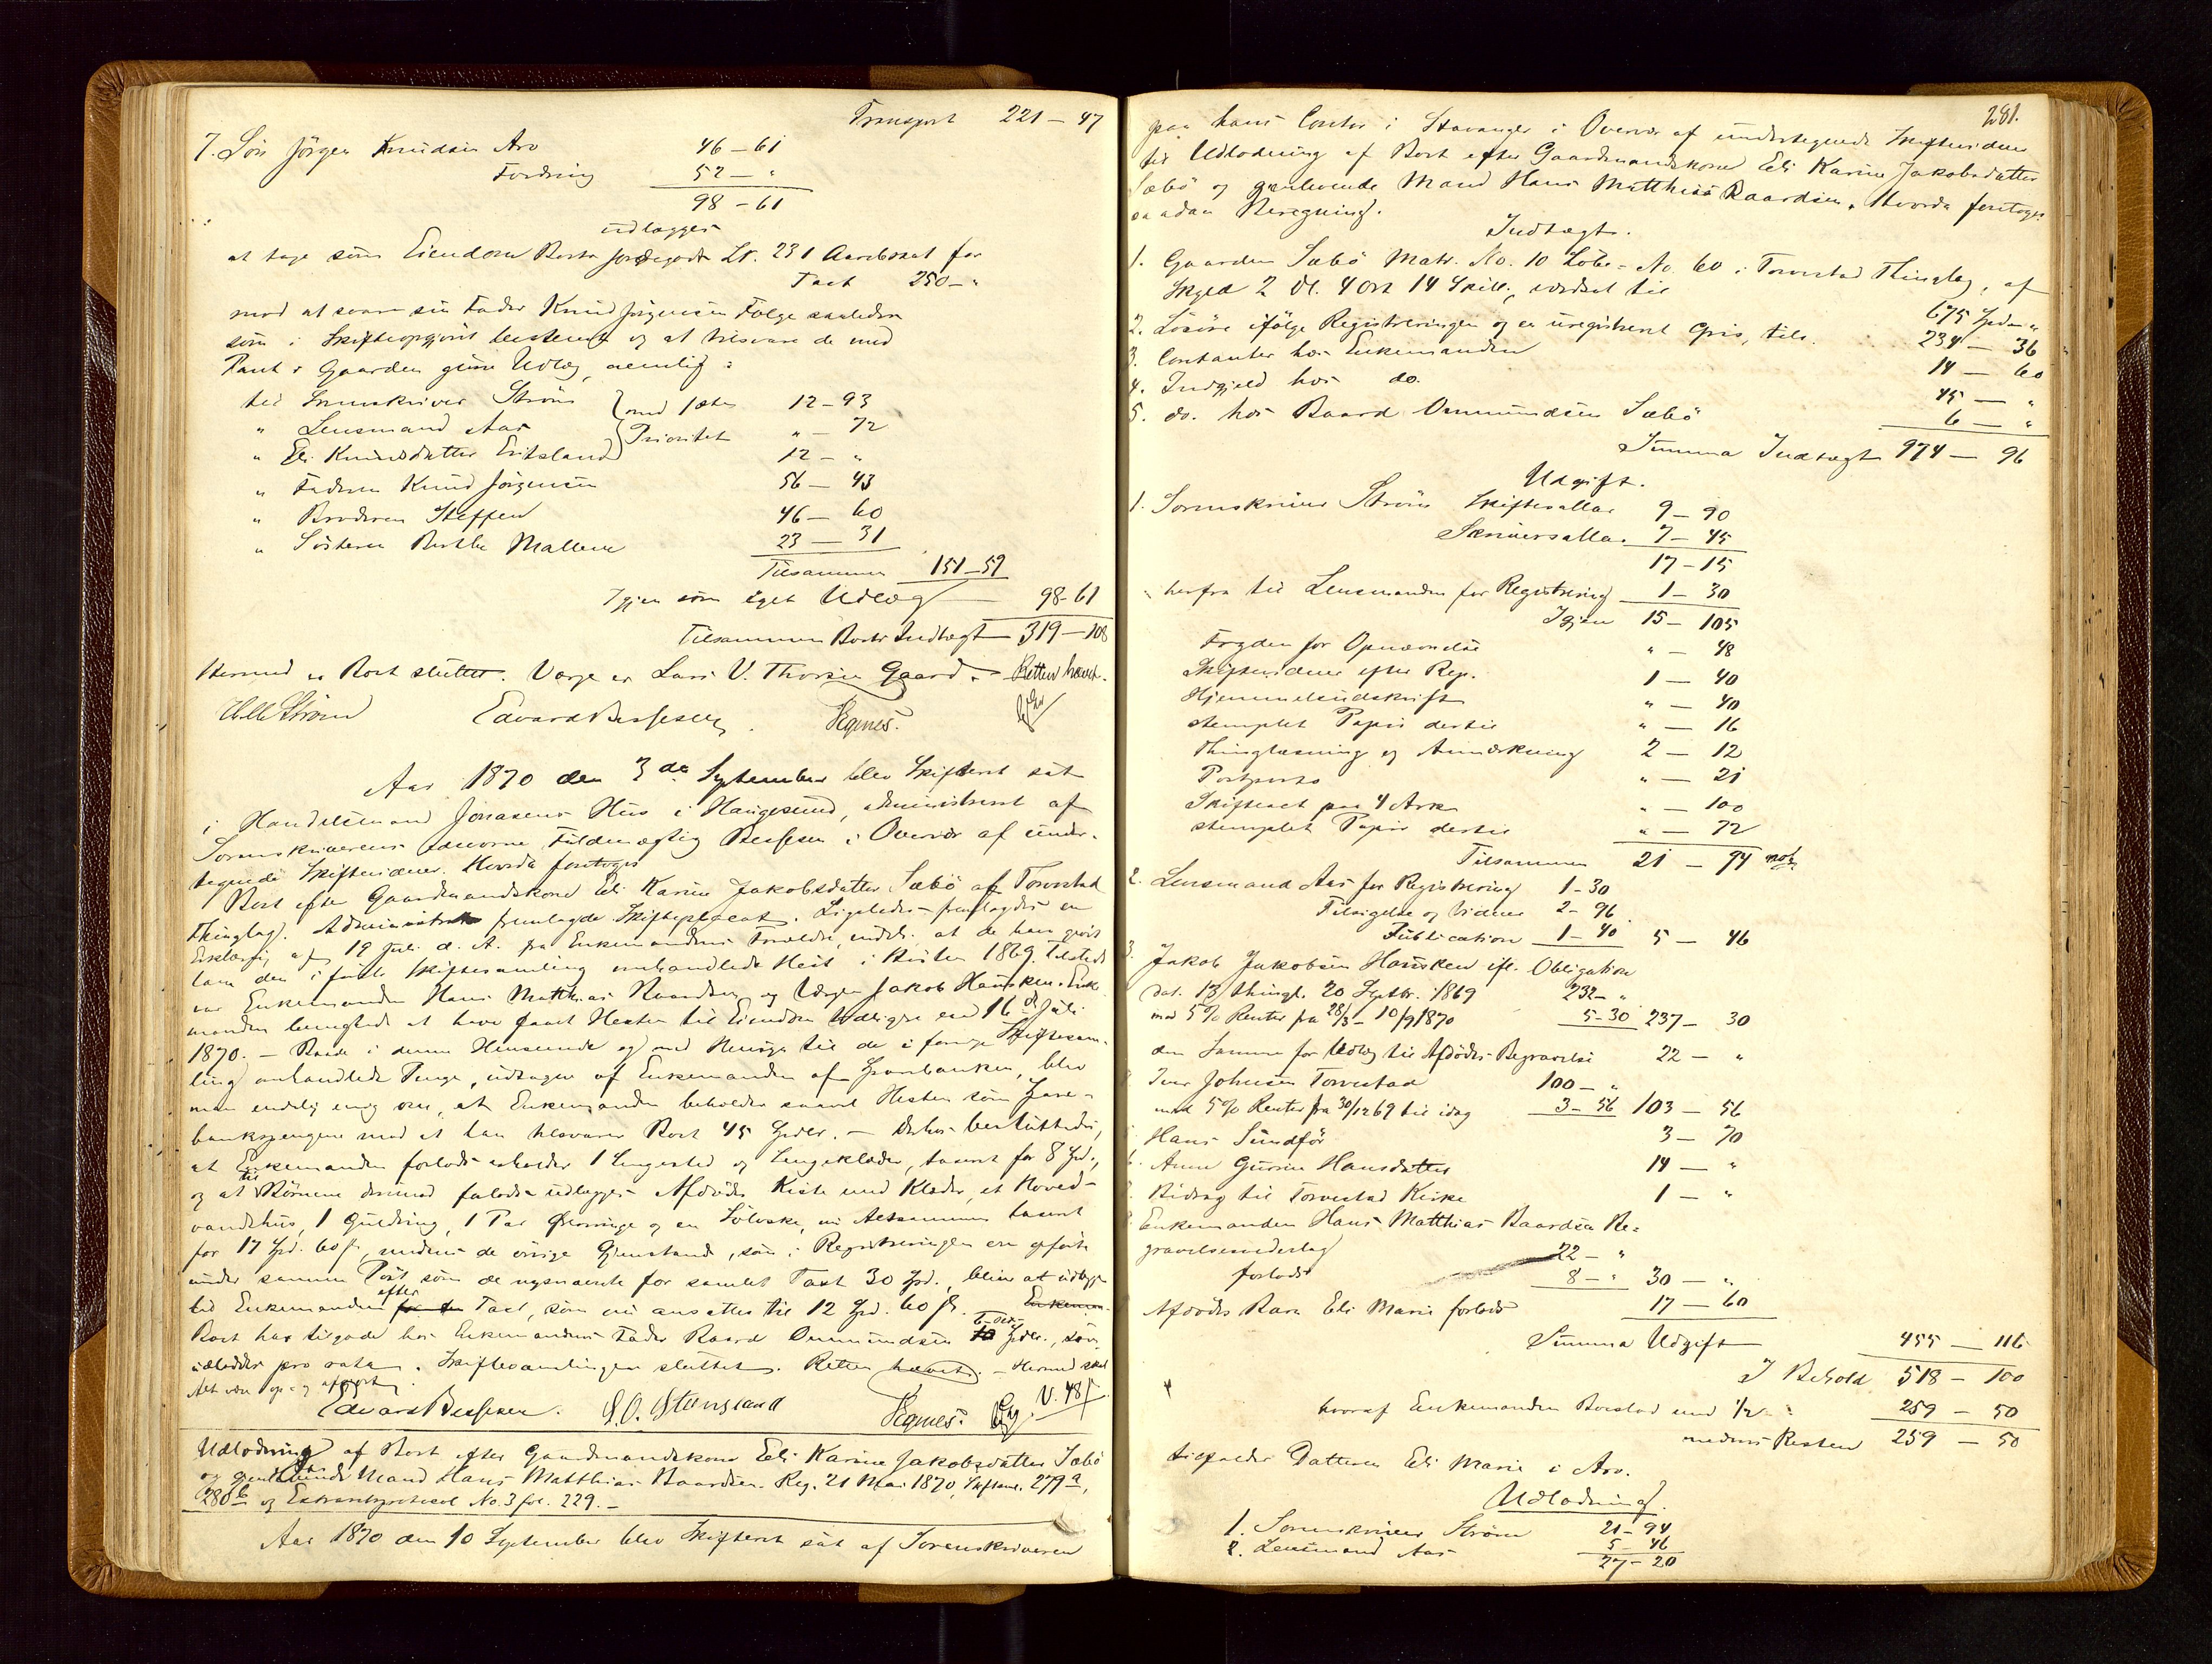 Transport 221 – 47
7. Søn Jörgen Knudsen Arv 46 – 61
Fordring 52 – "
98 – 61
udlægges
at tage som Eiendom Boets Jordegods Lt. 231 Aarebrot for
Taxt 250 – "
mod at svare sin Fader Knud Jörgensen Følge saaledes
som i Skifteopgjöret bestemt og at tilsvare de med
Pant i Gaarden givne Udlæg, nemlig:
til Sorenskriver Ström } med 1ste 12 – 93
" Lensmand Aas } Prioritet " – 72
" Eli Knudsdatter Eriksland 12 – "
" Faderen Knud Jörgensen 56 – 43
" Broderen Steffen 46 – 60
" Søsteren Berthe Mallene 23 – 31
Tilsammen 151 – 59
Igjen som eget Udlæg 98 – 61
Tilsammen Boets Indtægt 319 – 108
Hermed er Boet sluttet. Verge er Lars V. Thorsen Gaard. – Retten hævet.
Ström Edvard Bessesen. Vegnes.
Aar 1870 den 3de September blev Skifteret sat
i Handelsmand Jonasens Hus i Haugesund, administreret af
Sorenskriverens edsvorne Fuldmægtig Bessesen i Overvær af under-
tegnede Skiftevidner. Hvorda foretoges
Boet efter Gaardmandskone Eli Karine Jakobsdatter Sæbö af Torvestad
Thinglag. Administrator fremlagde Skifteplacat. Ligeledes fremlagdes en
Erklæring af 19 Juli d. A. fra Enkemandens Forældre, indeh. at de have givet
ham den i förste Skiftesamling omhandlede Hest i Høsten 1869. Tilstede
var Enkemanden Hans Matthias Baardsen og Vergen Jakob Hausken. Enke-
manden benegtede at have faaet Hesten til Eiendom tidligere end 16de Juli
1870. – Baade i denne Henseende og med Hensyn til de i forrige Skiftesam-
ling omhandlede Penge, udtagne af Enkemanden af Sparebanken, blev
man endelig enig om, at Enkemanden beholder saavel Hesten som Spare-
bankspengene mod at han tilsvarer Boet 45 Spdlr. – Derhos besluttedes,
at Enkemanden forlods erholder 1 Sengested og Sengeklæder, taxeret for 8 Spd.,
og at til Börnene dermed forlods udlægges Afdødes Kiste med Klæder, et Hoved-
vandshus, 1 Guldring, 1 Par Ørenringe og en Sölvske, nu Altsammen taxeret
for 17 Spd. 60 ß, medens de øvrige Gjenstande, som i Registreringen ere opførte
under samme Post som de nysnævnte for samlet Taxt 30 Spd., bliver at udlægge
til Enkemanden efter Taxt, som nu ansattes til 12 Spd. 60 ß.
Boet har tilgode hos Enkemandens Fader Baard Ommundsen 6 – sex – Spdlr., som
udloddes pro rata. Skiftesamlingen sluttet. Retten hævet. – Hermed skal
Alt være op- og afgjort.
Edvard Bessesen. S. O. Stensland Vegnes. V. 48 ß
Udlodning af Boet efter Gaardmandskone Eli Karine Jakobsdatter Sæbö
og gjenlevende Mand Hans Matthias Baardsen. Reg. 21 Mai 1870, Skiftesaml. 279a,
280b og Extraretsprotocol No. 3 fol. 229. –
Aar 1870 den 10 September blev Skifteret sat af Sorenskriveren
281.
paa hans Contor i Stavanger i Overvær af undertegnede Skiftevidner
til Udlodning af Boet efter Gaardmandskone Eli Karine Jakobsdatter
Sæbö og gjenlevende Mand Hans Matthias Baardsen. Hvorda foretoges
saadan Beregning.
Indtægt.
1. Gaarden Sæbö Matr. No. 10 Löbe-No. 60 i Torvestad Thinglag, af
Skyld 2 Dl. 4 Ort 14 Skill., værdsat til 675 Spdr. "
2. Lösöre ifölge Registreringen og en uregistreret Gris, tils. 234 – 36
3. Contanter hos Enkemanden 14 – 60
4. Indgjeld hos do. 45 – "
5. do. hos Baard Ommundsen Sæbö 6 – "
Summa Indtægt 974 – 96
Udgift.
1. Sorenskriver Ström Skiftesallar 9 – 90
Skriversallar 7 – 45
17 – 15
herfra til Lensmanden for Registrering 1 – 30
Igjen 15 – 105
Fogden for Opnævnelse " – 48
Skiftevidner efter Reg. 1 – 40
Hjemmelsudskrift " – 40
stemplet Papir dertil " – 16
Thinglæsning og Anmærkning 2 – 12
Postporto " – 21
Skifteact paa 4 Ark " – 100
stemplet Papir dertil " – 72
Tilsammen 21 – 94
2. Lensmand Aas for Registrering 1 – 30
Tilsigelse og Vidner 2 – 96
Publication 1 – 40 5 – 46
3. Jakob Jakobsen Hausken ifl. Obligation
dat. 13 thingl. 20 Septbr. 1869 232 – "
med 5% Renter fra 28/3 – 10/9 1870 5 – 30 237 – 30
den Samme for Udlæg til Afdødes Begravelse 22 – "
Iver Johnsen Torvestad 100 – "
med 5% Renter fra 30/12 69 til idag 3 – 56 103 – 56
Hans Sundför 3 – 70
6. Anne Gurine Hansdatter 14 – "
Bidrag til Torvestad Kirke 1 – "
Enkemanden Hans Matthias Baardsen Be-
gravelsesvederlag 22 – "
forlods 8 – " 30 – "
Afdødes Barn Eli Marie forlods 17 – 60
Summa Udgift 455 – 116
I Behold 518 – 100
hvoraf Enkemanden Boeslod med 1/2 259 – 50
medens Resten 259 – 50
tilfalder Datteren Eli Marie i Arv.
Udlodning.
1. Sorenskriver Ström 21 – 94
2. Lensmand Aas 5 – 46
27 – 20